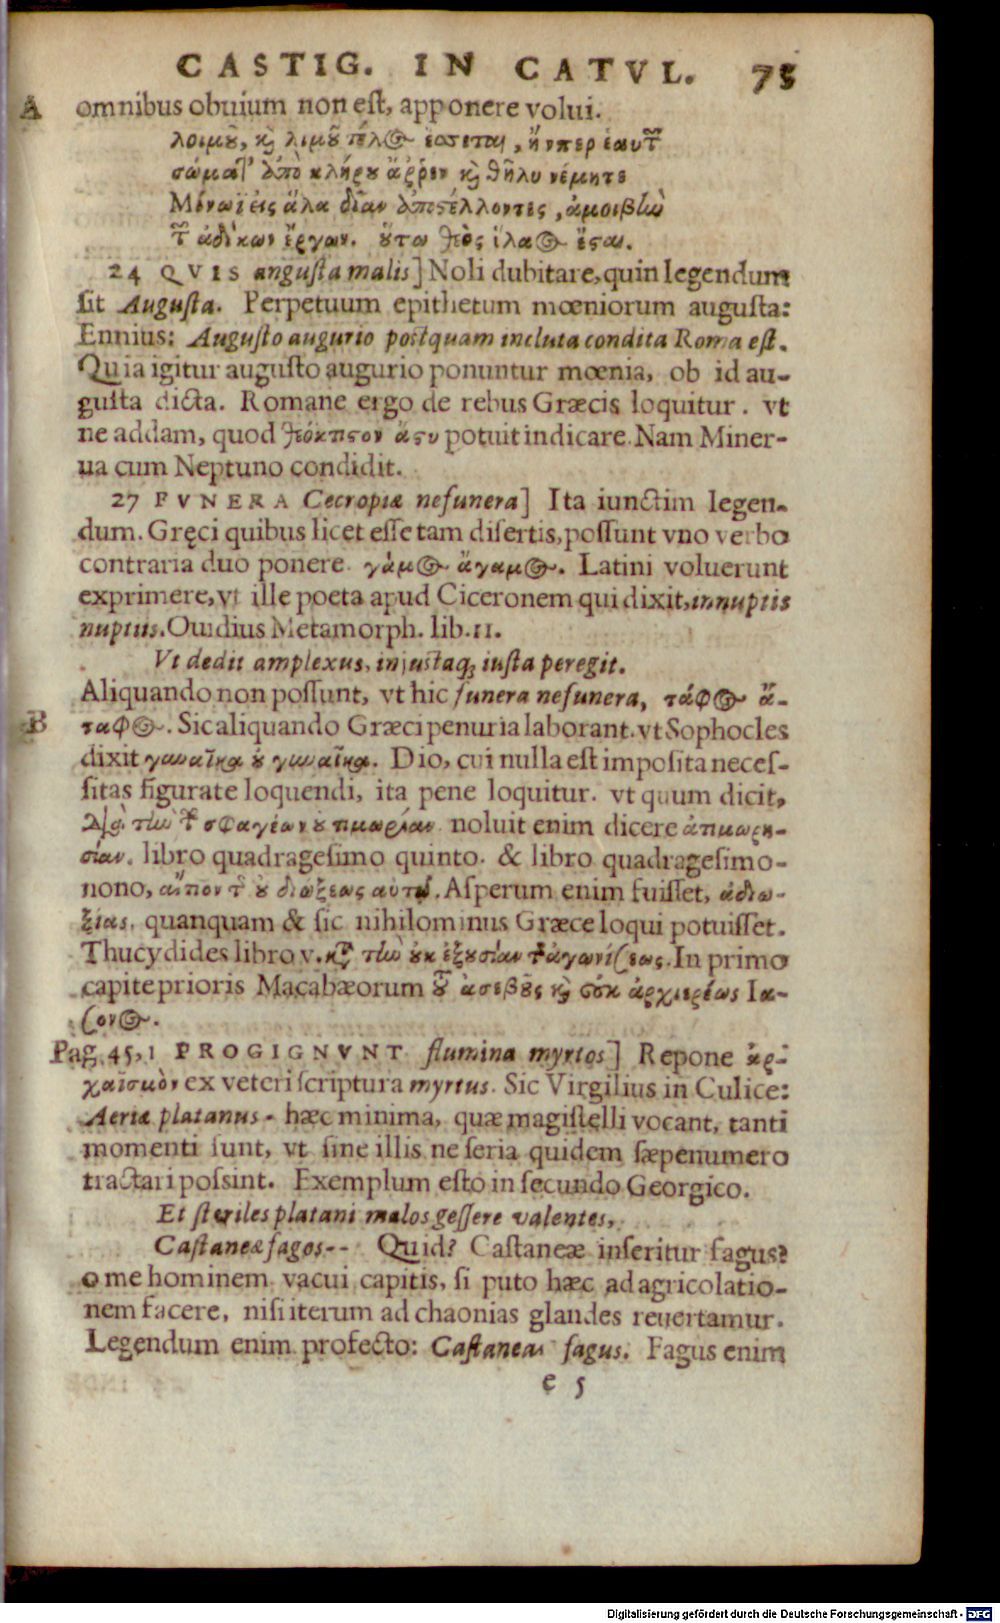 CASTIG. IN CATVL. 75
A omnibus obuium non est, apponere volui.
λοιμοῦ, καὶ λιμοῦ τέλος ἔσσεται, ἤνπερ ἑαυτῶν
σώματ' ἀπὸ κλήρου ἄῤῥεν καὶ θῆλυ νέμητε
Μίνωϊ εἰς ἅλα δῖαν ἀποστέλλοντες, ἀμοιβὴν
τῶν ἀδίκων ἔργων. οὕτω θεὸς ἵλαος ἔσται.
24 QVIS angusta malis] Noli dubitare, quin legendum
sit Augusta. Perpetuum epithetum mœniorum augusta:
Ennius: Augusto augurio postquam incluta condita Roma est.
Quia igitur augusto augurio ponuntur mœnia, ob id au-
gusta dicta. Romane ergo de rebus Græcis loquitur. vt
ne addam, quod θεόκτιστον ἄστυ potuit indicare. Nam Miner-
ua cum Neptuno condidit.
27 FVNERA Cecropiæ nefunera] Ita iunctim legen-
dum. Gręci quibus licet esse tam disertis, possunt vno verbo
contraria duo ponere γάμος ἄγαμος. Latini voluerunt
exprimere, vt ille poeta apud Ciceronem qui dixit, innuptis
nuptiis. Ouidius Metamorph. lib. 11.
Vt dedit amplexus, iniustaq; iusta peregit.
Aliquando non possunt, vt hic funera nefunera, τάφος ἄ-
B ταφος. Sic aliquando Græci penuria laborant. vt Sophocles
dixit γυναῖκα οὐ γυναῖκα. Dio, cui nulla est imposita neces-
sitas figurate loquendi, ita pene loquitur. vt quum dicit,
διὰ τὴν τῶν σφαγέων οὐ τιμωρίαν noluit enim dicere ἀτιμωρη-
σίαν. libro quadragesimo quinto. & libro quadragesimo-
nono, αἴτιον τῆς οὐ διώξεως αὐτῶν. Asperum enim fuisset, ἀδιω-
ξίας, quanquam & sic nihilominus Græce loqui potuisset.
Thucydides libro v. κατὰ τὴν οὐκ ἐξουσίαν τῆς ἀγωνίσεως. In primo
capite prioris Macabæorum τοῦ ἀσεβοῦς καὶ οὐκ ἀρχιερέως Ια-
σονος.
Pag. 45, 1 PROGIGNVNT flumina myrtos] Repone ἀρ-
χαϊσμὸν ex veteri scriptura myrtus. Sic Virgilius in Culice:
Aeriæ platanus- hæc minima, quæ magistelli vocant, tanti
momenti sunt, vt sine illis ne seria quidem sæpenumero
tractari possint. Exemplum esto in secundo Georgico.
Et steriles platani malos gessere valentes,
Castaneæ fagos-- Quid? Castaneæ inseritur fagus?
o me hominem vacui capitis, si puto hæc ad agricolatio-
nem facere, nisi iterum ad chaonias glandes reuertamur.
Legendum enim profecto: Castaneas fagus. Fagus enim
e 5
Digitalisierung gefördert durch die Deutsche Forschungsgemeinschaft - DFG